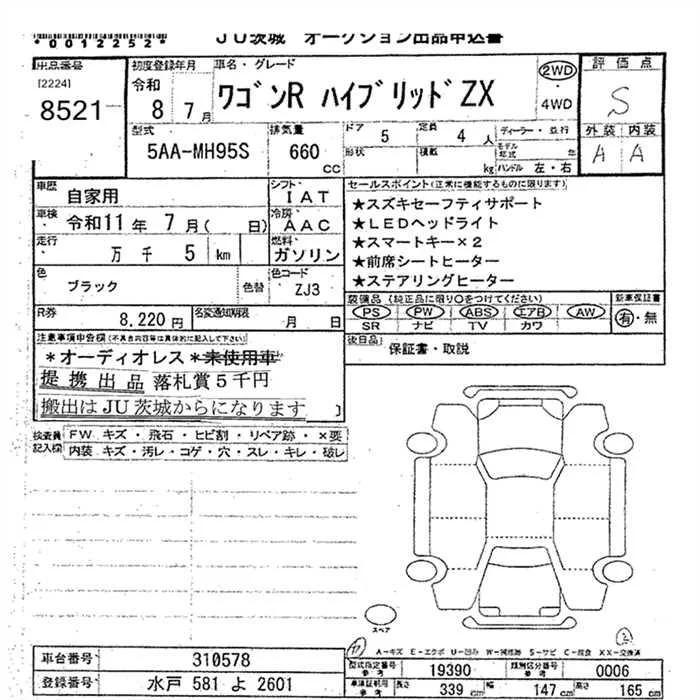 *0012252*
JU茨城 オークション出品申込書
出品番号
[2224]
8521
初度登録年月
令和
8 7月
車名・グレード
ワゴンR ハイブリッドZX
2WD
4WD
評価点
S
外装 内装
A A
型式
5AA-MH95S
排気量
660
cc
ドア
5
定員
4人
形状
積載
kg
ディーラー・並行
モデル年式 年
ハンドル 左・右
車歴
自家用
シフト
IAT
車検
令和11年 7月( 日)
冷房
AAC
走行
万 千 5 km
燃料
ガソリン
色
ブラック
色替
色コード
ZJ3
R券
8,220円
名変通知期限
月 日
セールスポイント(正常に機能するものに限ります)
★スズキセーフティサポート
★LEDヘッドライト
★スマートキー×2
★前席シートヒーター
★ステアリングヒーター
装備品(純正品に限り○をつけてください)
PS PW ABS エアB AW
SR ナビ TV カワ
新車保証書
有・無
後日品
保証書・取説
注意事項申告欄(不具合内容等は具体的に記入して下さい)
*オーディオレス*未使用車
提携出品 落札賞5千円
搬出はJU茨城からになります
検査員記入欄
FW キズ・飛石・ヒビ割・リペア跡・×要
内装 キズ・汚レ・コゲ・穴・スレ・キレ・破レ
スペア
A-キズ E-エクボ U-凹ミ W-補修跡 S-サビ C-腐食 XX-交換済
車台番号
310578
登録番号
水戸 581 よ 2601
型式指定番号
参考
19390
類別区分番号
参考
0006
車検証記載
参考
長さ
339 cm
幅
147 cm
高さ
165 cm